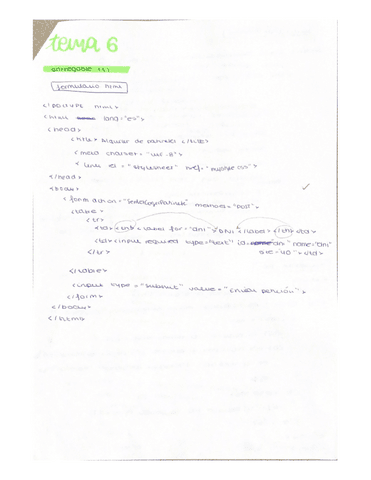 tema 6
entregable (1)
formulario html
<!doctype html>
<html lang="es">
<head>
<title> Alquiler de parcelas </title>
<meta charset="utf-8">
<link el="stylesheet" href="multiple.css">
</head>
<body>
<form action="ServletCogeParcelas" method="post">
<table>
<tr>
<td> <th> <label for="dni"> DNI: </label> </th> </td>
<td><input required type="text" id="dni" name="dni"
size="40"></td>
</tr>
</table>
<input type="submit" value="Enviar petición">
</form>
</body>
</html>